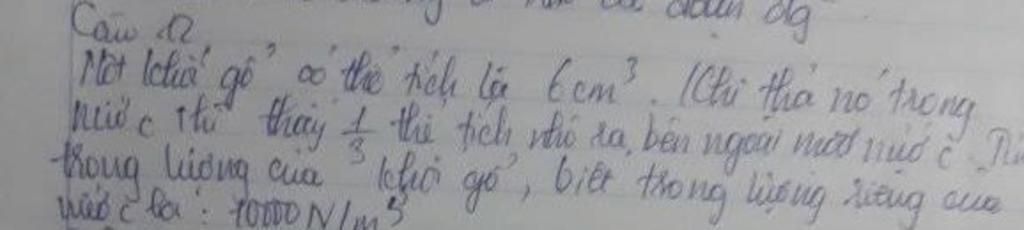 đoạn dg
Câu 12
Một khối gỗ có thể tích là 6cm³. Khi thả nó trong
nước thì thấy 1/3 thể tích nhô ra bên ngoài mặt nước.
trọng lượng của khối gỗ, biết trọng lượng riêng của
nước là: 10000N/m³